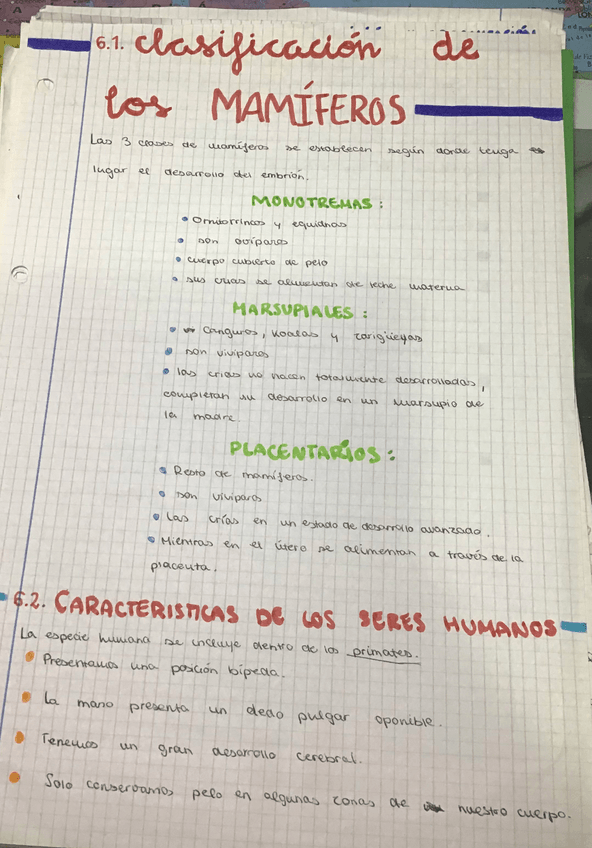 6.1. Clasificación de
los MAMÍFEROS
Las 3 clases de mamíferos se establecen según donde tenga
lugar el desarrollo del embrión.
MONOTREMAS:
• Ornitorrincos y equidnas
• son ovíparos
• cuerpo cubierto de pelo
• sus crias se alimentan de leche materna
MARSUPIALES:
• Canguros, koalas y zarigüeyas
• son vivíparos
• las crías no nacen totalmente desarrolladas,
completan su desarrollo en un marsupio de
la madre.
PLACENTARIOS:
• Resto de mamíferos.
• son vivíparos
• Las crías en un estado de desarrollo avanzado.
• Mientras en el útero se alimentan a través de la
placenta.
6.2. CARACTERISTICAS DE LOS SERES HUMANOS
La especie humana se incluye dentro de los primates.
• Presentamos una posición bípeda.
• La mano presenta un dedo pulgar oponible.
• Tenemos un gran desarrollo cerebral.
• Solo conservamos pelo en algunas zonas de nuestro cuerpo.